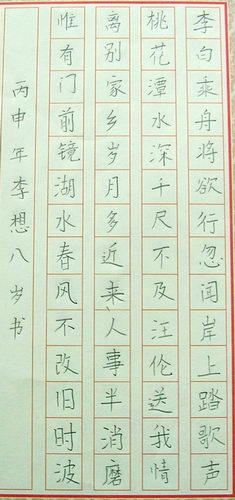 李白乘舟将欲行忽闻岸上踏歌声
桃花潭水深千尺不及汪伦送我情
离别家乡岁月多近来人事半消磨
惟有门前镜湖水春风不改旧时波
丙申年李想八岁书